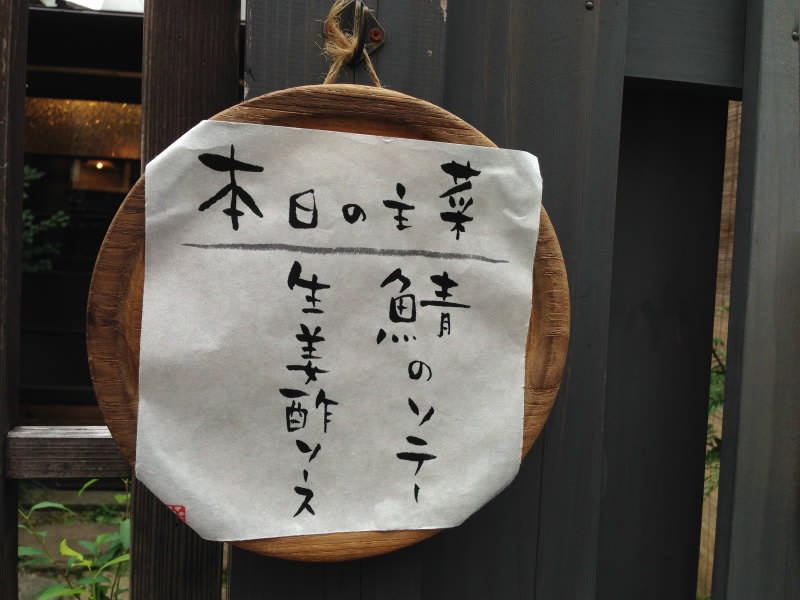 本日の主菜
鯖のソテー
生姜酢ソース